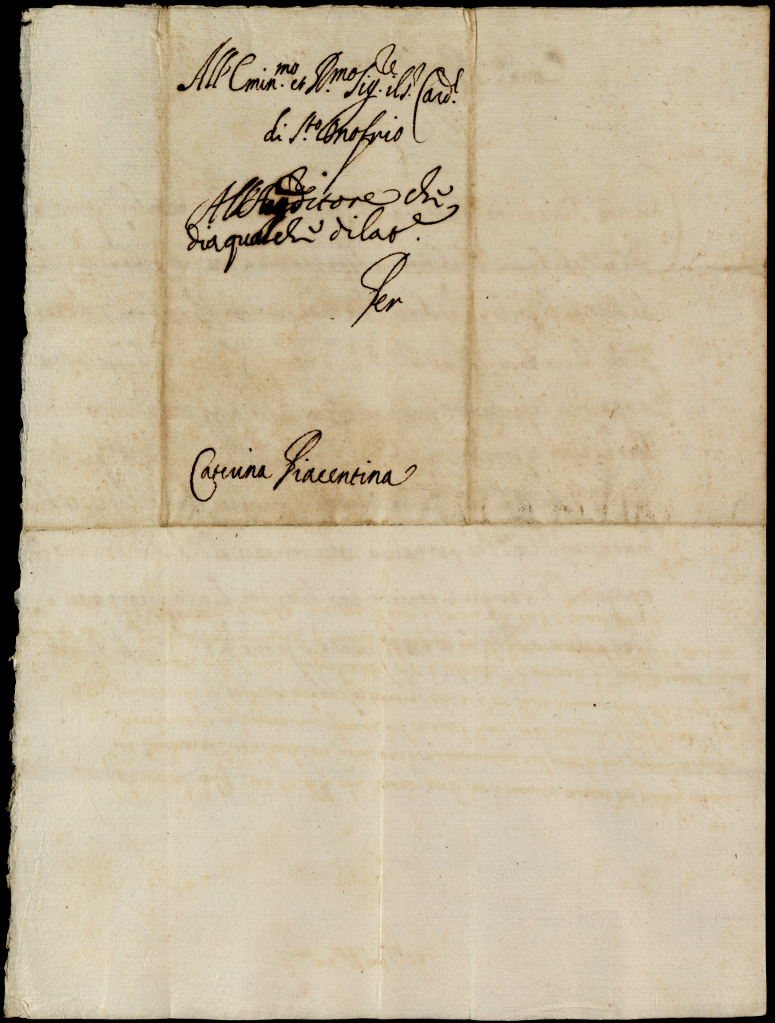 All' Emin.mo et R.mo Sig.re il S.r Card.l
di S.to Onofrio
All'Auditore che
dia qualche dilat.e
Per
Caterina Piacentina